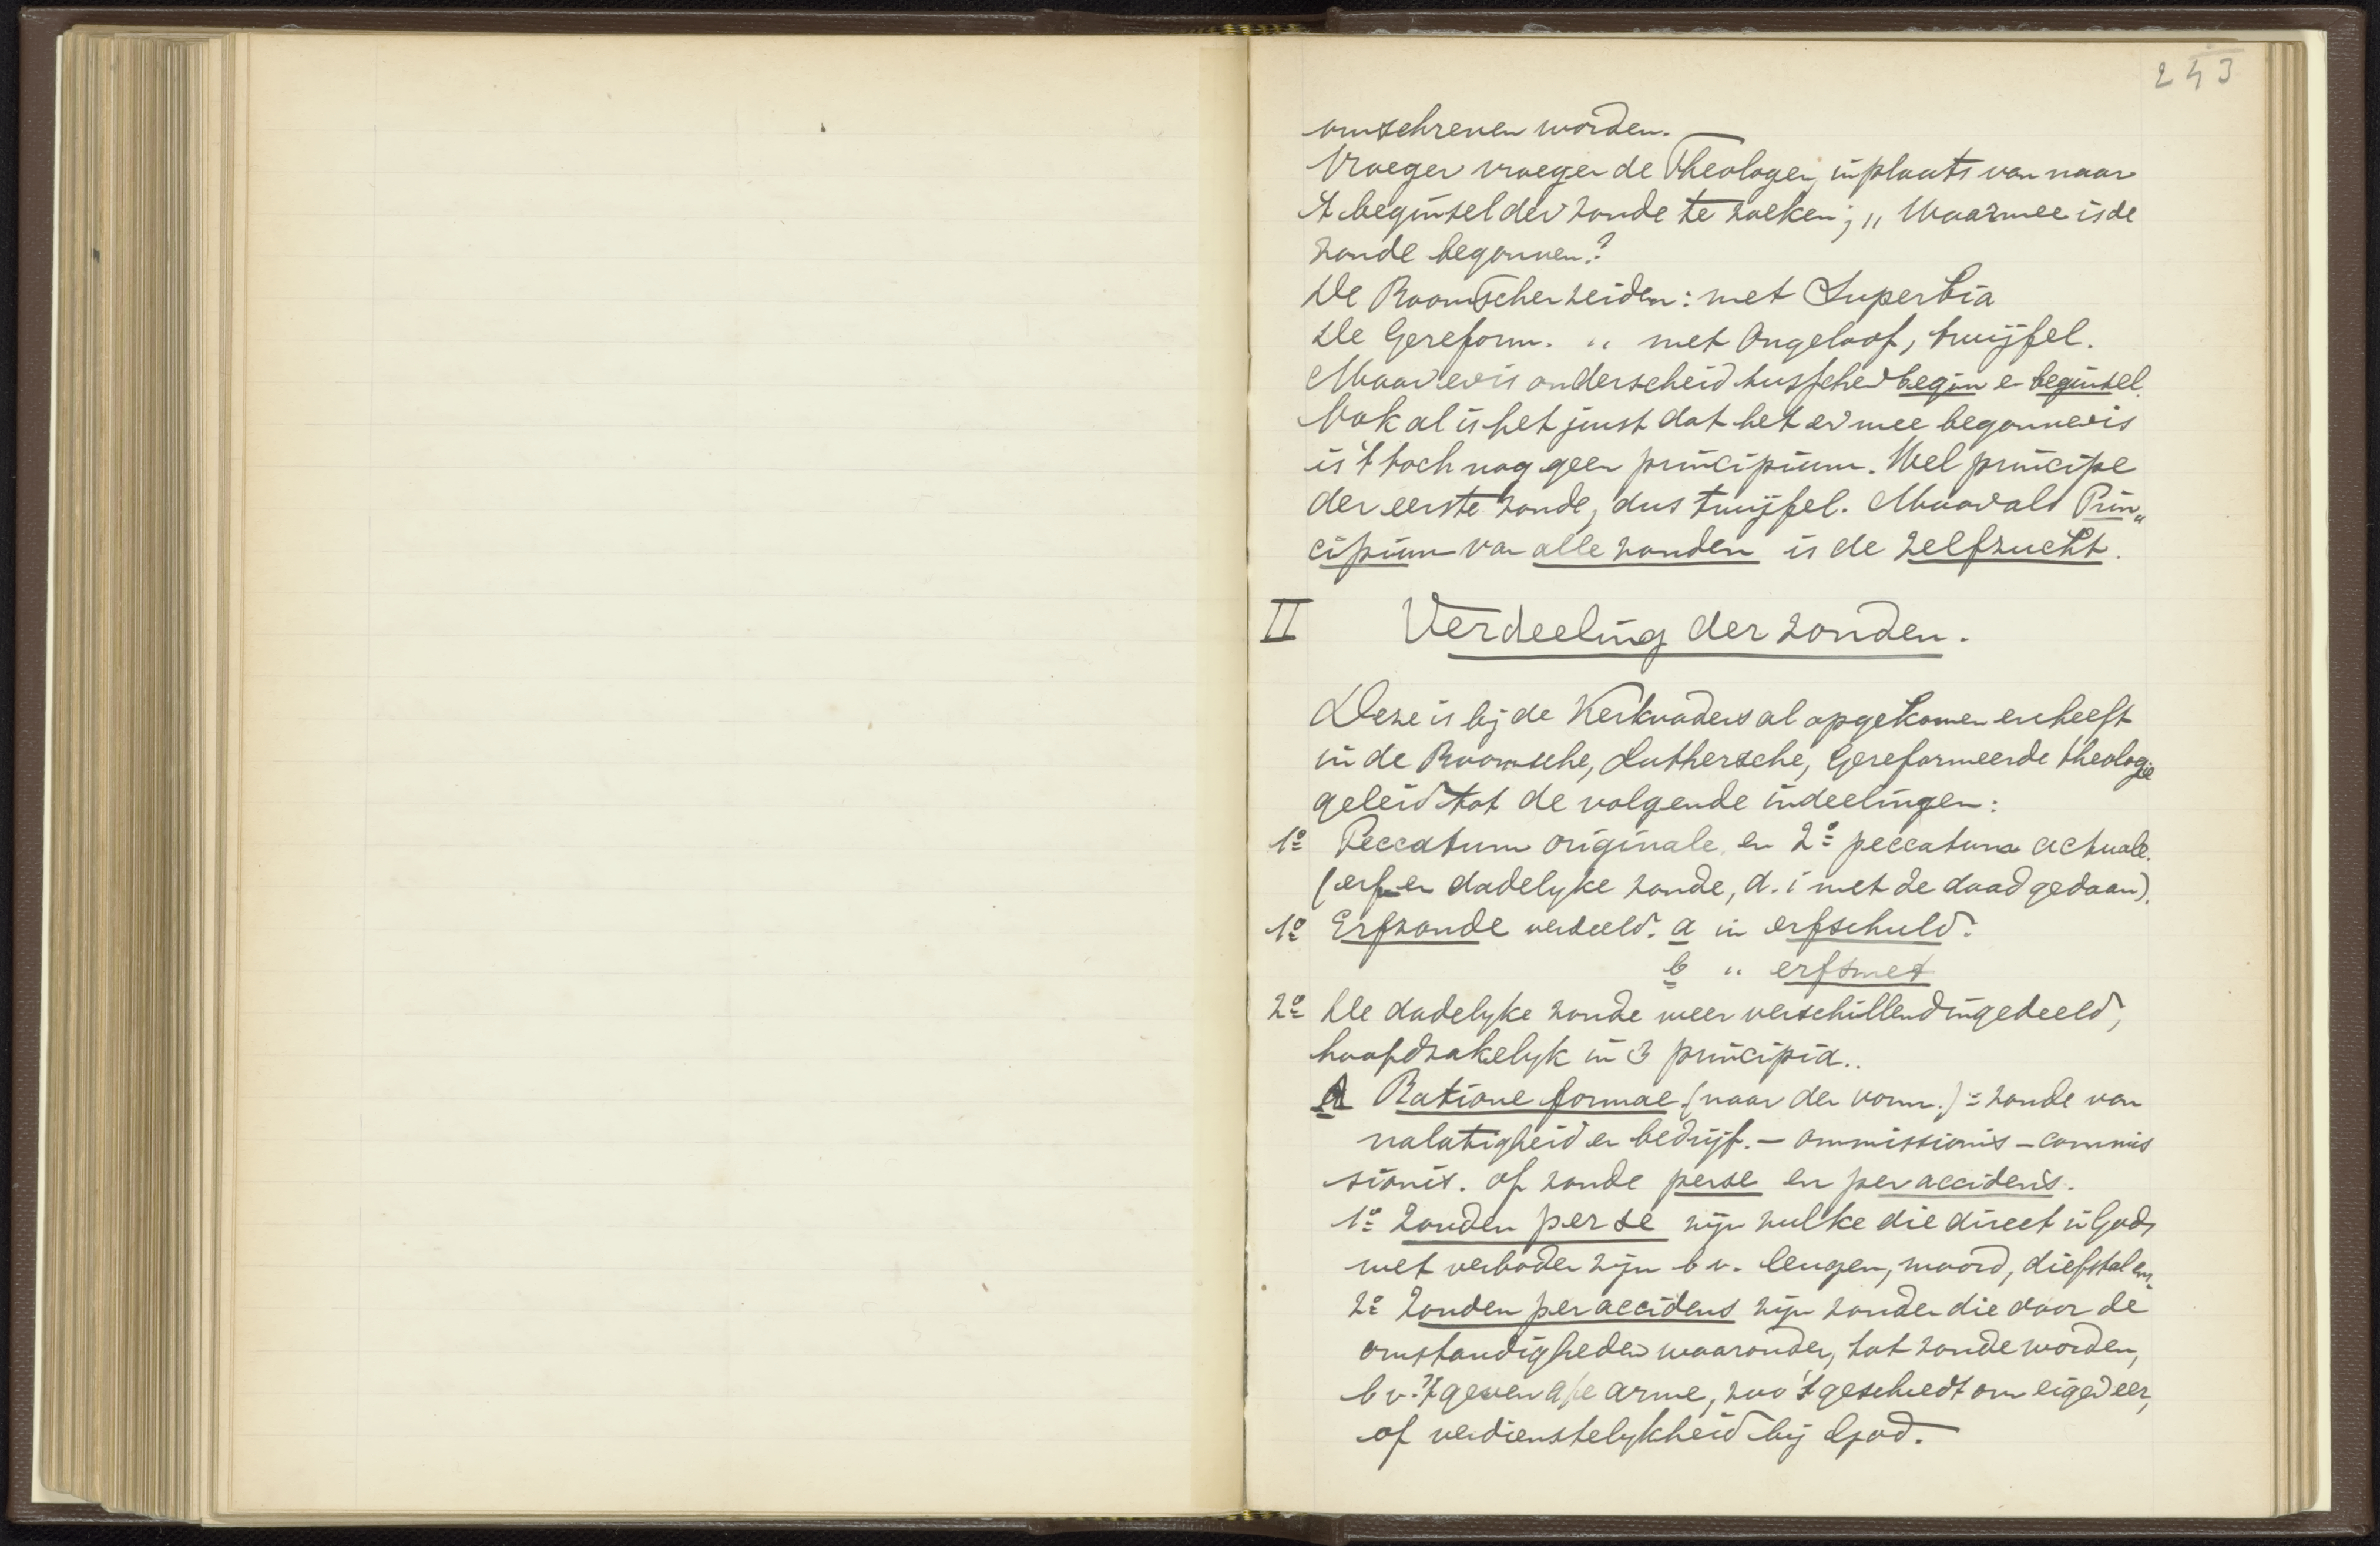 243
omschreven worden.
Vroeger vroegen de Theologen, in plaats van naar
't beginsel der zonde te zoeken; „ Waarmee is de
zonde begonnen?
De Roomschen zeiden: met Superbia
De Gereform. „ met Ongeloof, twijfel.
Maar er is onderscheid tusschen begin en beginsel.
Ook al is het juist dat het er mee begonnen is
is 't toch nog geen principium. Wel principe
der eerste zonde, dus twijfel. Maar als Prin„
cipium van alle zonden is de zelfzucht.
II Verdeeling der zonden.
Deze is bij de Kerkvaders al opgekomen en heeft
in de Roomsche, Luthersche, Gereformeerde theologie
geleid tot de volgende indeelingen:
1o Peccatum originale en 2o peccatum actuale.
(erf en dadelyke zonde, d. i met de daad gedaan).
1o Erfzonde verdeeld. a in erfschuld.
b „ erfsmet
2o De dadelyke zonde weer verschillend ingedeeld,
hoofdzakelyk in 3 principia..
A Ratione formae (naar den vorm.) = zonde van
nalatigheid en bedrijf. – ommissionis – commis
sionis. of zonde per se en per accidens.
1o Zonden per se zijn zulke die direct in Gods
wet verboden zijn b v. leugen, moord, diefstal enz.
2o Zonden per accidens zijn zonden die door de
omstandigheden waaronder, tot zonde worden,
b v. 't geven a/e arme, zoo 't geschiedt om eigen eer,
of verdienstelykheid bij God.